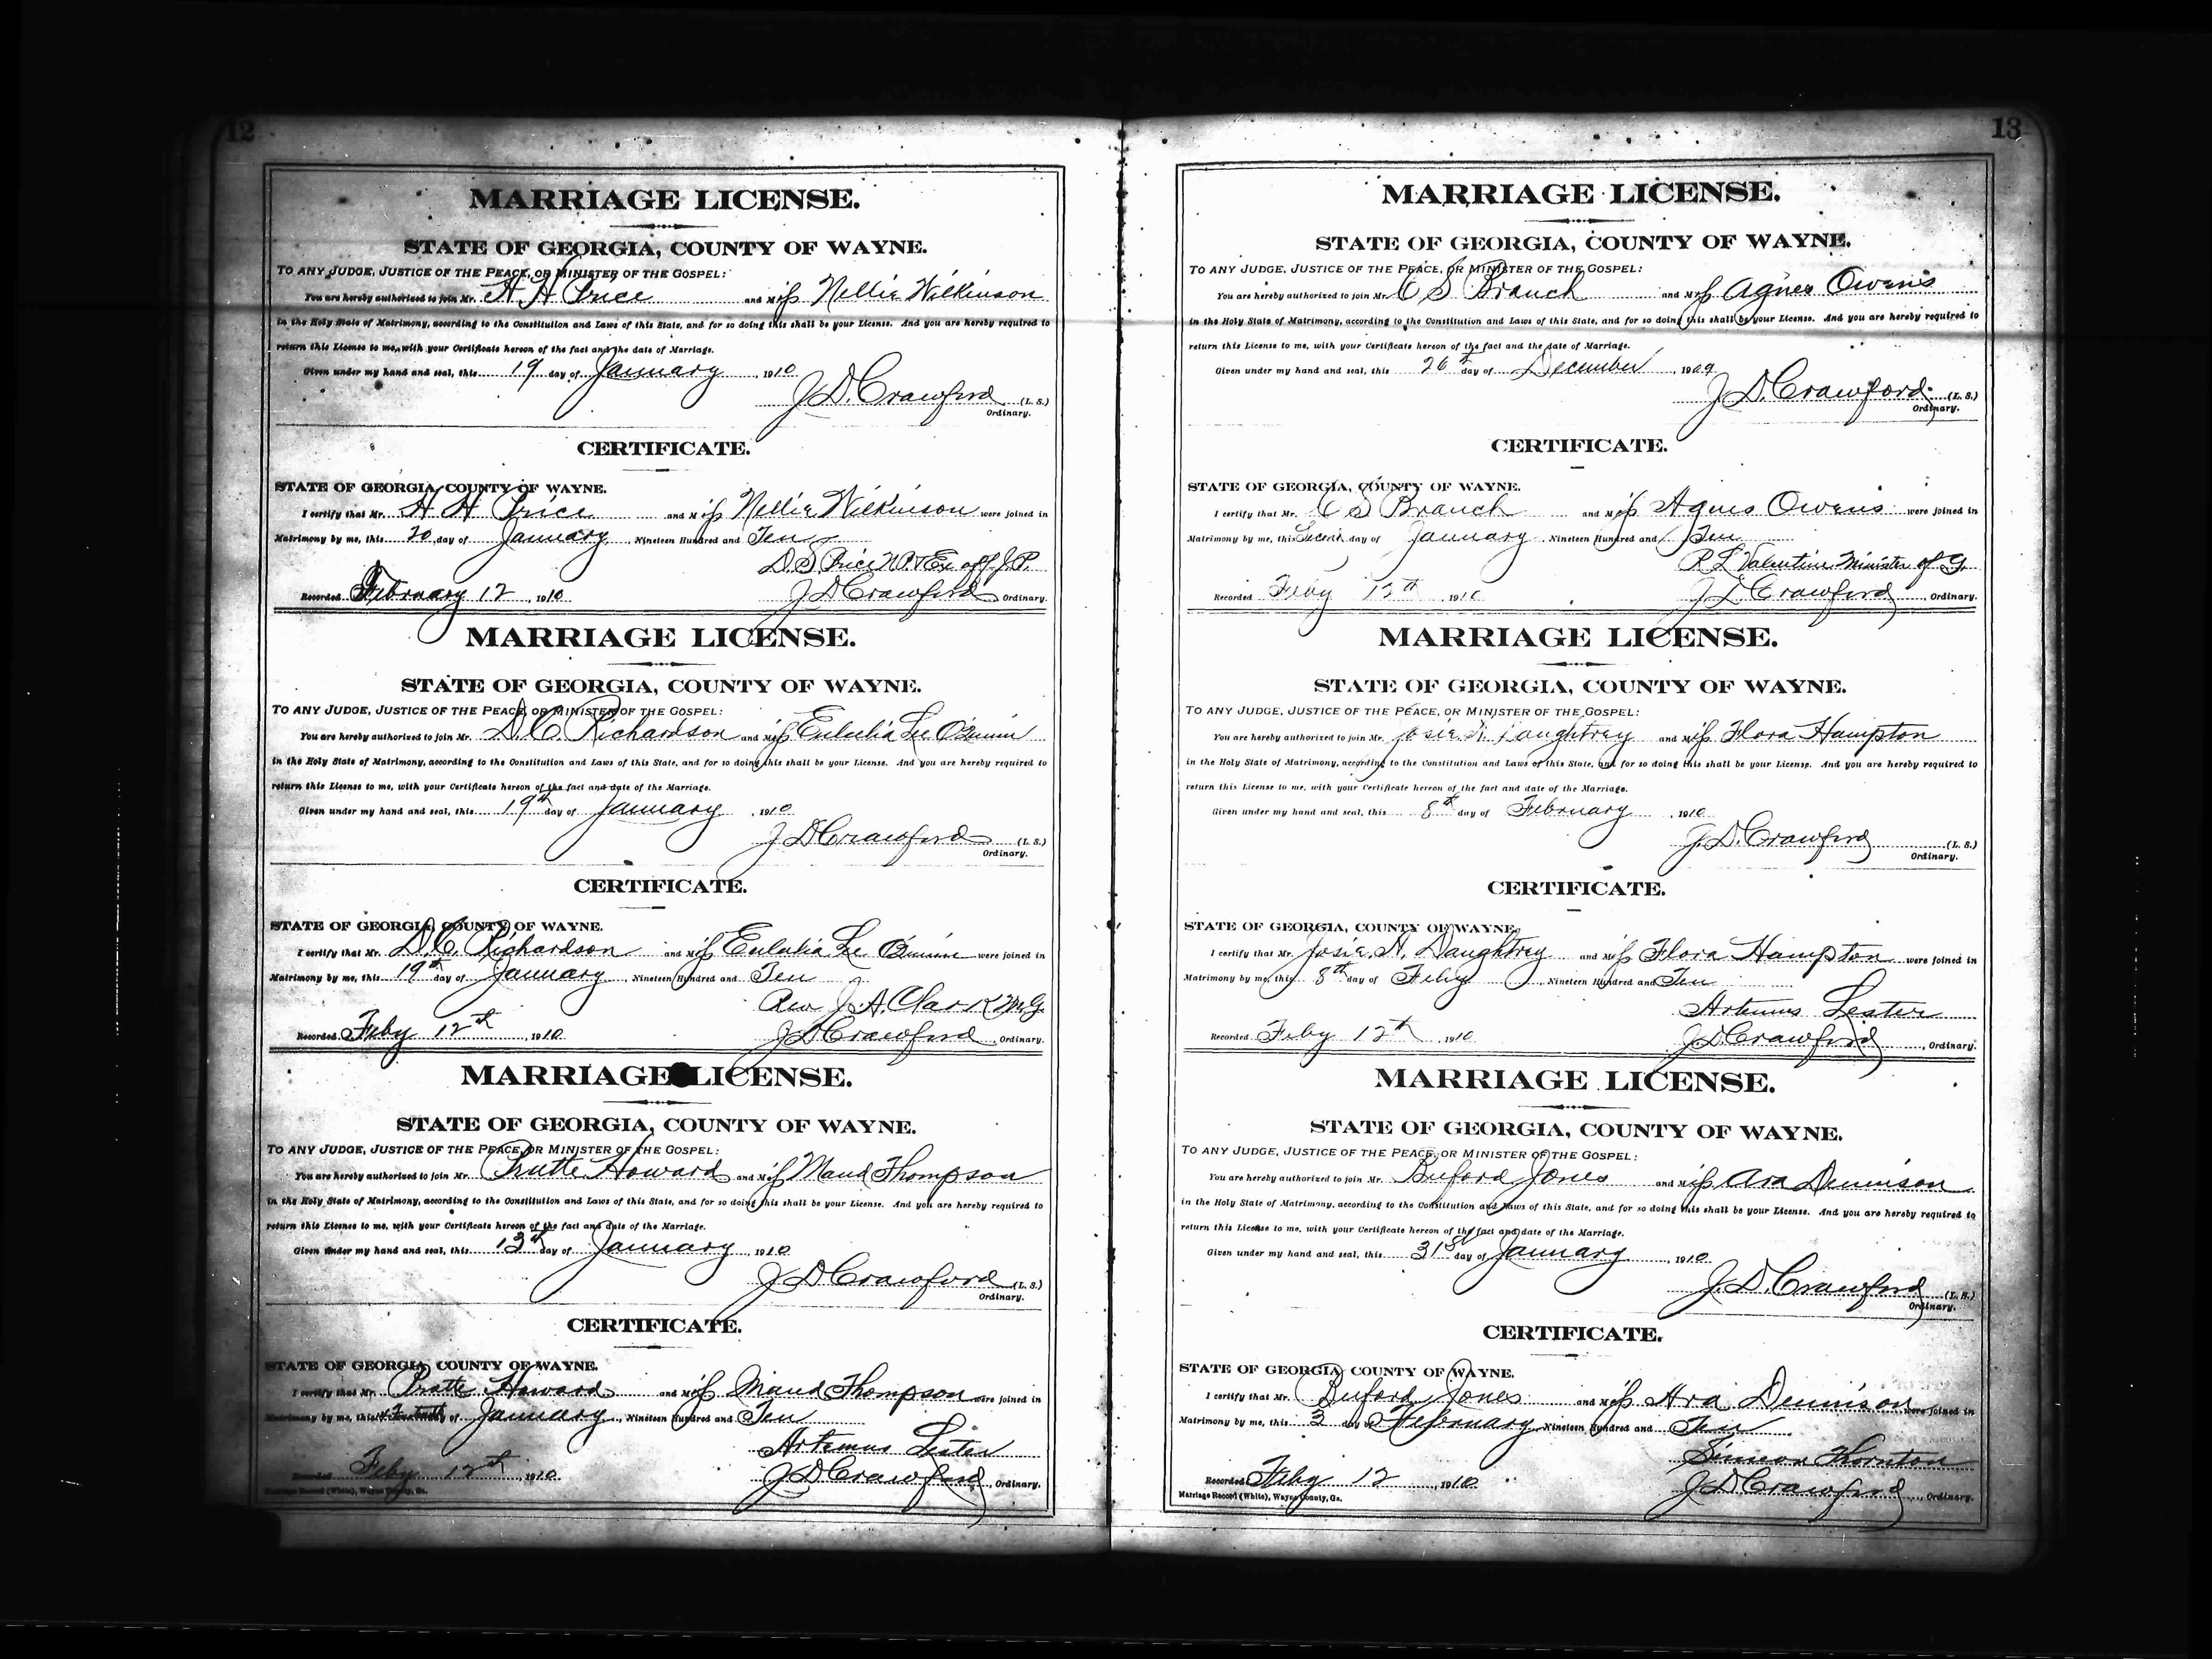 12
MARRIAGE LICENSE.
STATE OF GEORGIA, COUNTY OF WAYNE.
TO ANY JUDGE, JUSTICE OF THE PEACE, OR MINISTER OF THE GOSPEL:
You are hereby authorized to join Mr. H. H. Price and Miss Nellie Wilkinson
in the Holy State of Matrimony, according to the Constitution and Laws of this State, and for so doing this shall be your License. And you are hereby required to
return this License to me, with your Certificate hereon of the fact and the date of Marriage.
Given under my hand and seal, this 19 day of January, 1910
J. D. Crawford (L. S.)
Ordinary.
CERTIFICATE.
STATE OF GEORGIA, COUNTY OF WAYNE.
I certify that Mr. H. H. Price and Miss Nellie Wilkinson were joined in
Matrimony by me, this 20 day of January, Nineteen Hundred and Ten
D. S. Price N.P. & Ex off. J.P.
Recorded February 12, 1910 J D Crawford Ordinary.
MARRIAGE LICENSE.
STATE OF GEORGIA, COUNTY OF WAYNE.
TO ANY JUDGE, JUSTICE OF THE PEACE, OR MINISTER OF THE GOSPEL:
You are hereby authorized to join Mr. D. C. Richardson and Miss Eulelia Lee O'Quinn
in the Holy State of Matrimony, according to the Constitution and Laws of this State, and for so doing this shall be your License. And you are hereby required to
return this License to me, with your Certificate hereon of the fact and date of the Marriage.
Given under my hand and seal, this 19th day of January, 1910
J D Crawford (L. S.)
Ordinary.
CERTIFICATE.
STATE OF GEORGIA, COUNTY OF WAYNE.
I certify that Mr. D. C. Richardson and Miss Eulelia Lee O'Quinn were joined in
Matrimony by me, this 19th day of January, Nineteen Hundred and Ten
Rev J. A. Clark M.G.
Recorded Feby 12th, 1910 J D Crawford, Ordinary.
MARRIAGE LICENSE.
STATE OF GEORGIA, COUNTY OF WAYNE.
TO ANY JUDGE, JUSTICE OF THE PEACE, OR MINISTER OF THE GOSPEL:
You are hereby authorized to join Mr. Howard and Miss Maud Thompson
in the Holy State of Matrimony, according to the Constitution and Laws of this State, and for so doing this shall be your License. And you are hereby required to
return this License to me, with your Certificate hereon of the fact and date of the Marriage.
Given under my hand and seal, this 13th day of January, 1910
J D Crawford (L. S.)
Ordinary.
CERTIFICATE.
STATE OF GEORGIA, COUNTY OF WAYNE.
I certify that Mr. Howard and Miss Maud Thompson were joined in
Matrimony by me, this day of January, Nineteen Hundred and Ten
Artemus Lester
Recorded Feby 12th, 1910 J D Crawford, Ordinary.
Marriage Record (White), Wayne County, Ga.
13
MARRIAGE LICENSE.
STATE OF GEORGIA, COUNTY OF WAYNE.
TO ANY JUDGE, JUSTICE OF THE PEACE, OR MINISTER OF THE GOSPEL:
You are hereby authorized to join Mr. C S Branch and Miss Agnes Owens
in the Holy State of Matrimony, according to the Constitution and Laws of this State, and for so doing this shall be your License. And you are hereby required to
return this License to me, with your Certificate hereon of the fact and the date of Marriage.
Given under my hand and seal, this 26th day of December, 1909
J. D. Crawford (L. S.)
Ordinary.
CERTIFICATE.
STATE OF GEORGIA, COUNTY OF WAYNE.
I certify that Mr. C S Branch and Miss Agnes Owens were joined in
Matrimony by me, this Second day of January, Nineteen Hundred and Ten
R L Valentine Minister of G.
Recorded Feby 12th, 1910 J D Crawford, Ordinary.
MARRIAGE LICENSE.
STATE OF GEORGIA, COUNTY OF WAYNE.
TO ANY JUDGE, JUSTICE OF THE PEACE, OR MINISTER OF THE GOSPEL:
You are hereby authorized to join Mr. Josie Daughtrey and Miss Flora Hampton
in the Holy State of Matrimony, according to the Constitution and Laws of this State, and for so doing this shall be your License. And you are hereby required to
return this License to me, with your Certificate hereon of the fact and date of the Marriage.
Given under my hand and seal, this 8th day of February, 1910
J. D. Crawford (L. S.)
Ordinary.
CERTIFICATE.
STATE OF GEORGIA, COUNTY OF WAYNE.
I certify that Mr. Josie Daughtrey and Miss Flora Hampton were joined in
Matrimony by me, this 8th day of Feby, Nineteen Hundred and Ten
Artemus Lester
Recorded Feby 12th, 1910 J. D. Crawford, Ordinary.
MARRIAGE LICENSE.
STATE OF GEORGIA, COUNTY OF WAYNE.
TO ANY JUDGE, JUSTICE OF THE PEACE, OR MINISTER OF THE GOSPEL:
You are hereby authorized to join Mr. Buford Jones and Miss Ara Dennison
in the Holy State of Matrimony, according to the Constitution and Laws of this State, and for so doing this shall be your License. And you are hereby required to
return this License to me, with your Certificate hereon of the fact and date of the Marriage.
Given under my hand and seal, this 31st day of January, 1910
J. D. Crawford (L. S.)
Ordinary.
CERTIFICATE.
STATE OF GEORGIA, COUNTY OF WAYNE.
I certify that Mr. Buford Jones and Miss Ara Dennison were joined in
Matrimony by me, this 3 day of February, Nineteen Hundred and Ten
Simeon Thornton
Recorded Feby 12, 1910 J D Crawford, Ordinary.
Marriage Record (White), Wayne County, Ga.